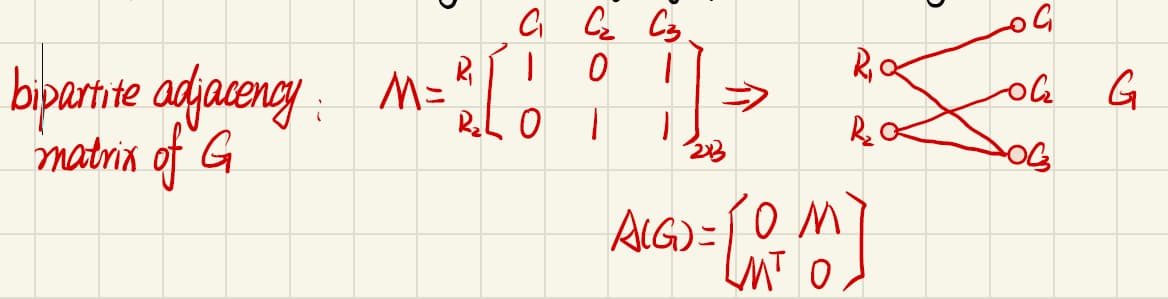 bipartite adjacency :
matrix of G
M =
C₁ C₂ C₃
R₁ [ 1 0 1
R₂ 0 1 1 ] 2x3
⇒
R₁
R₂
C₁
C₂
C₃
G
A(G) = [ 0 M
Mᵀ 0 ]